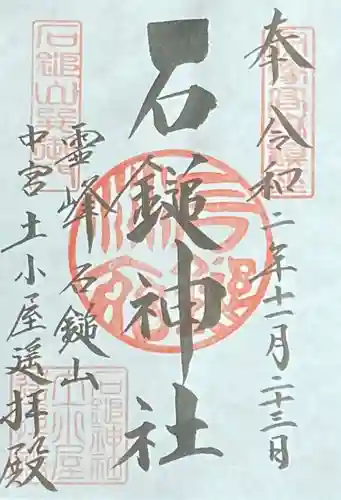 奉
令和二年十一月二十三日
石鎚神社
霊峰石鎚山
中宮土小屋遥拝殿
石鎚神社
土小屋